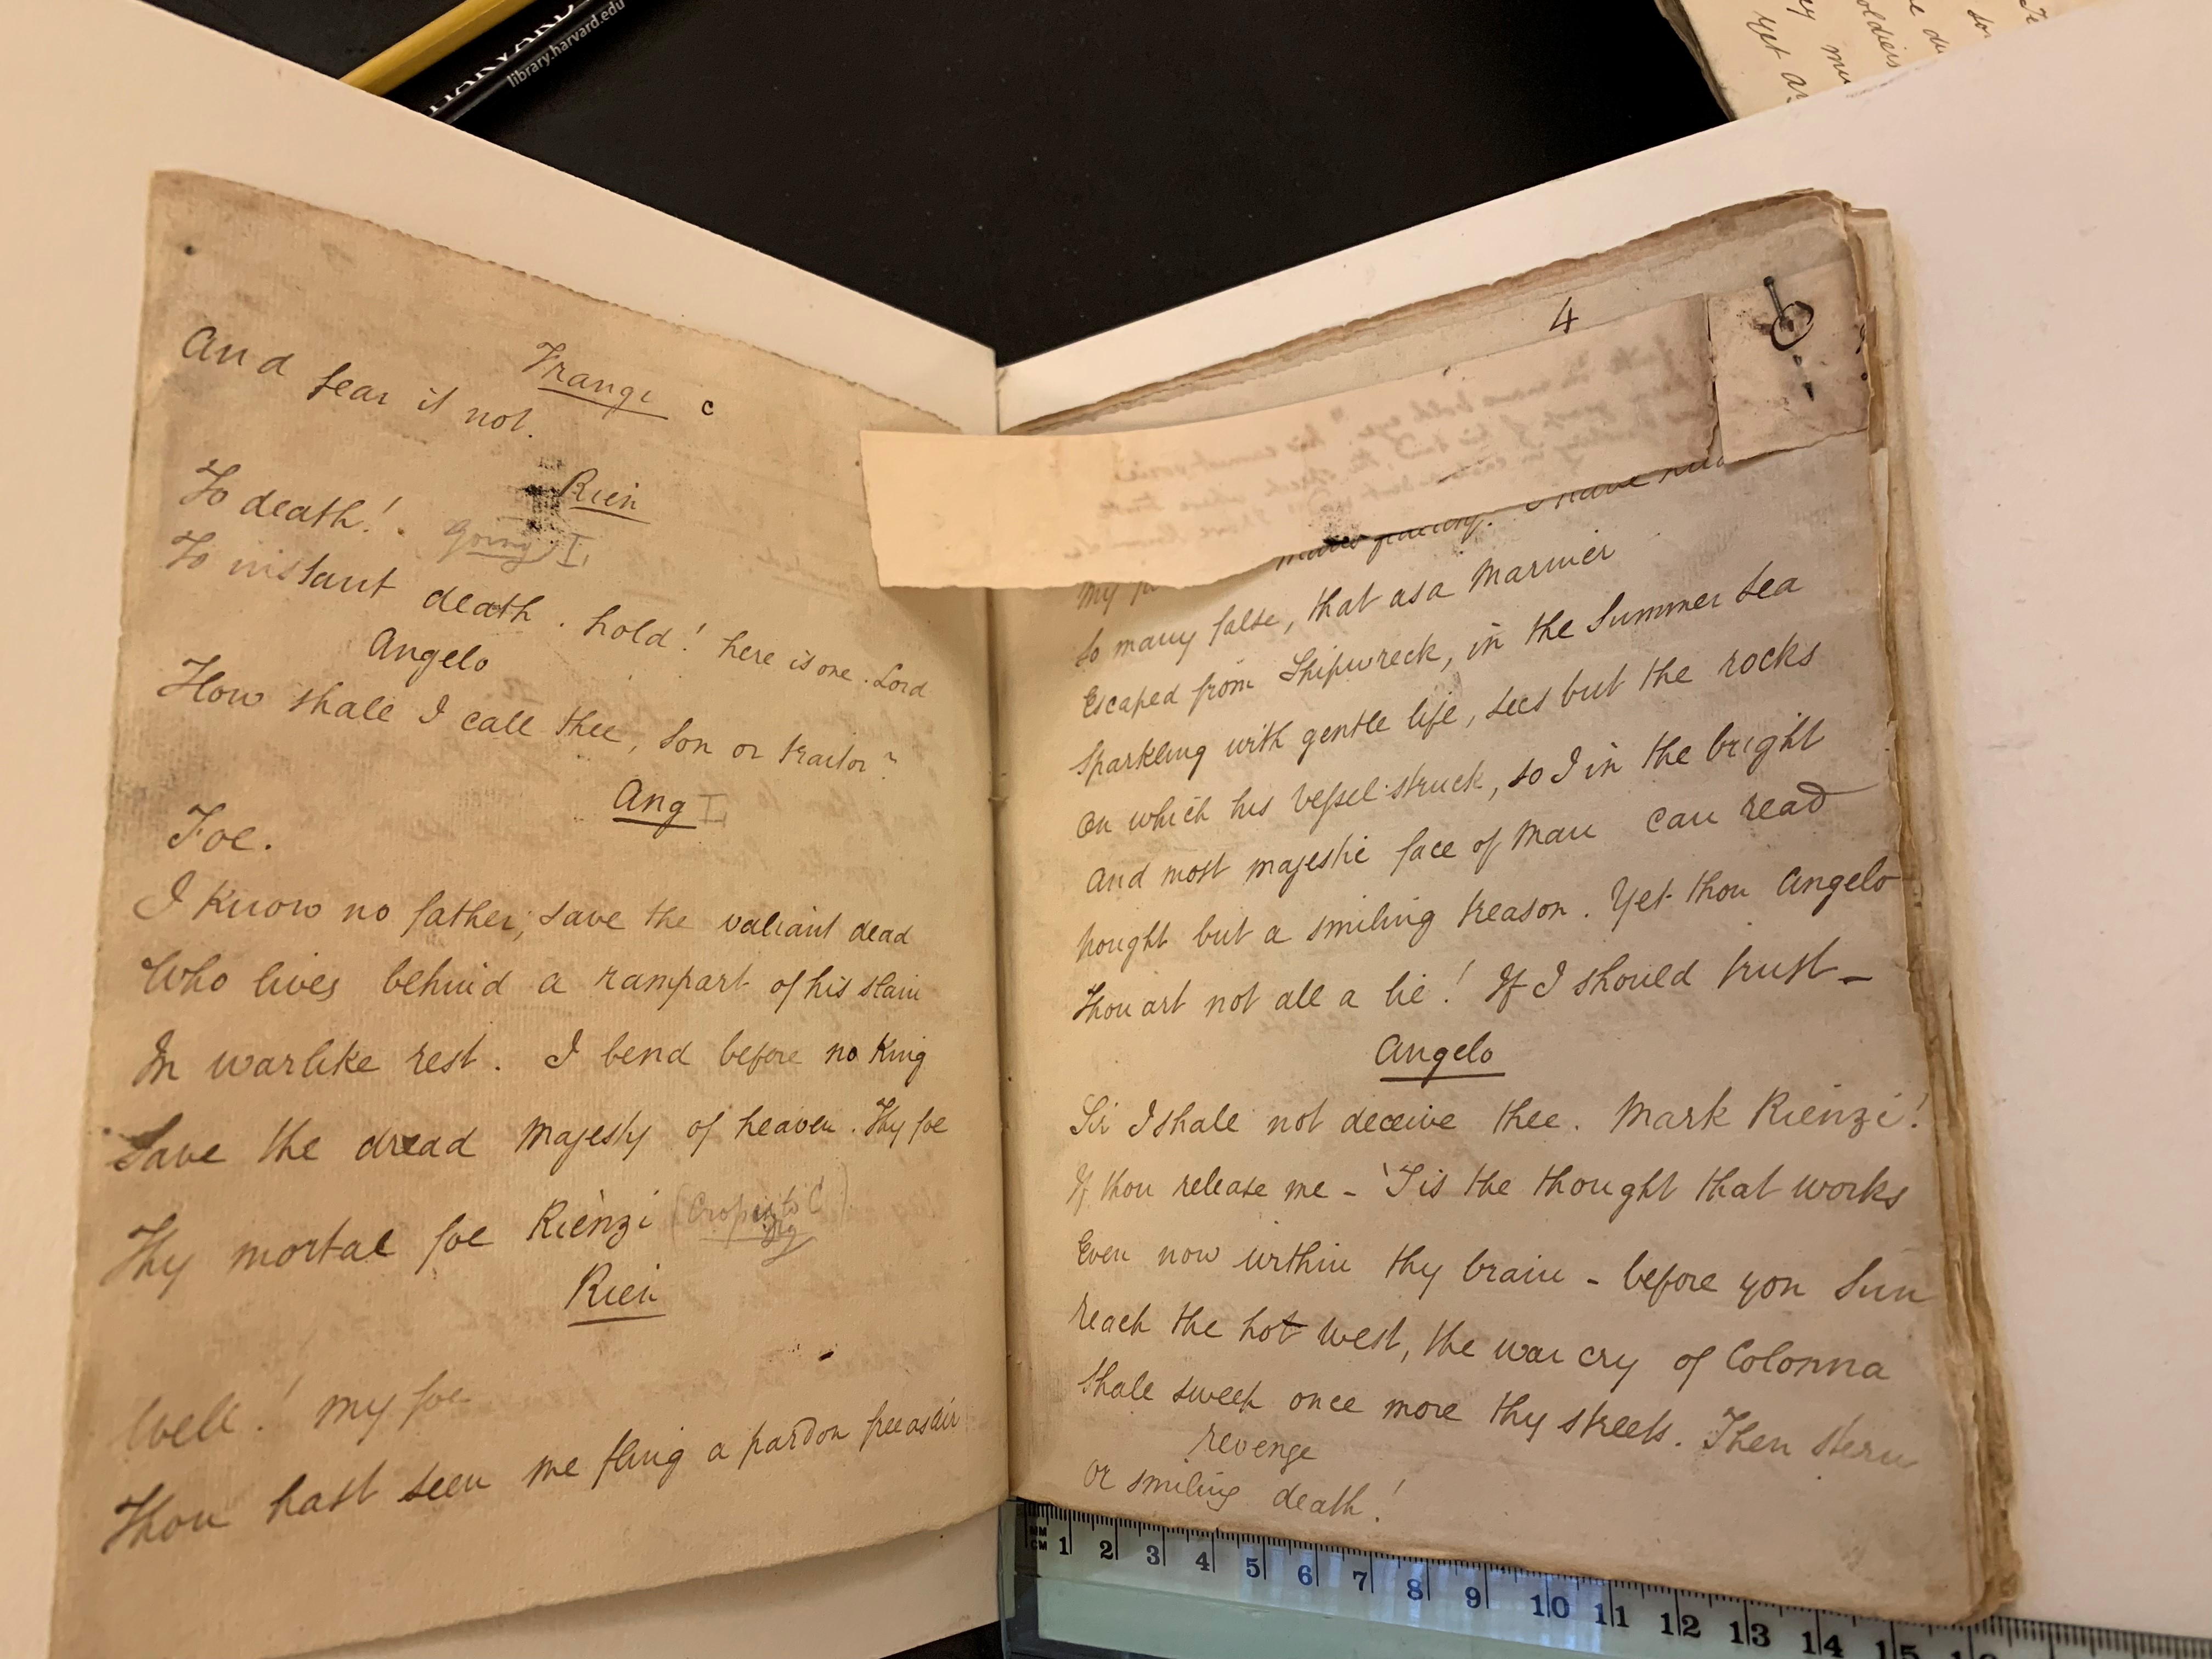 library.harvard.edu
Frangi c
And fear it not.
Rien
To death! . Going
To instant death . hold! here is one . Lord
Angelo
How shall I call thee, Son or traitor?
Ang
Foe.
I know no father, save the valiant dead
Who lives behind a rampart of his slain
In warlike rest . I bend before no King
Save the dread Majesty of heaven . Thy foe
Thy mortal foe Rienzi
Rien
Well! my foe
Thou hast seen me fling a pardon free as air
4
My
So many false, that as a Mariner
Escaped from Shipwreck, in the Summer Sea
Sparkling with gentle life, sees but the rocks
On which his Vessel struck, so I in the bright
And most majestic face of Man can read
Nought but a smiling treason . Yet thou Angelo
Thou art not all a lie! If I should trust —
Angelo
Sir I shall not deceive thee . Mark Rienzi!
If thou release me – 'Tis the thought that works
Even now within thy brain – before yon Sun
Reach the hot West, the war cry of Colonna
Shall sweep once more thy streets . Then stern
revenge
Or smiling death!
MM
CM 1 2 3 4 5 6 7 8 9 10 11 12 13 14 15